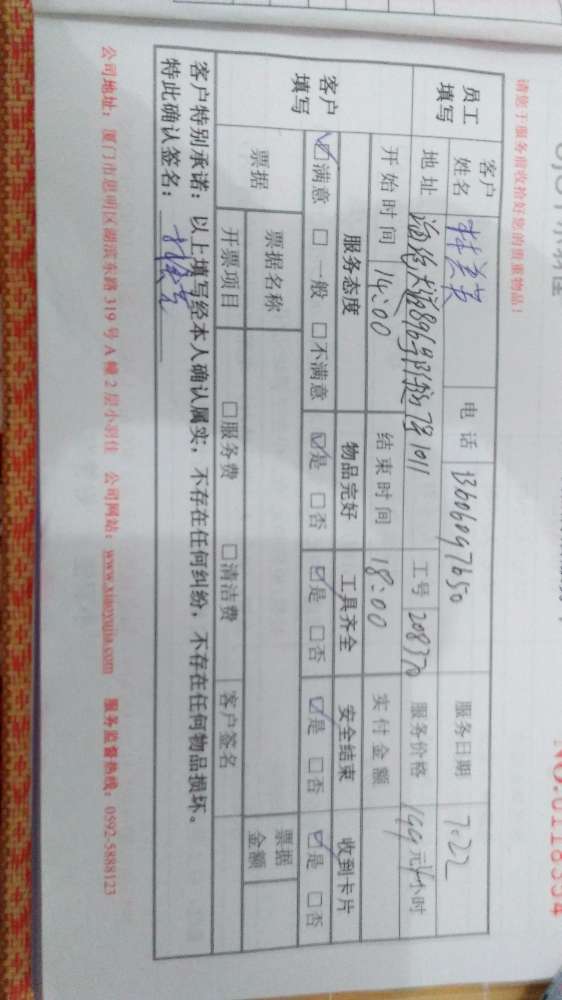 请您于服务前收拾好您的贵重物品！
NO.0118394
员工填写 客户姓名 林美英 电话 13606097650 服务日期 7.22
地址 896号 7号1011 工号 208370 服务价格 199元/小时
开始时间 14:00 结束时间 18:00 实付金额
客户填写 服务态度 物品完好 工具齐全 安全结束 收到卡片
☑满意 □一般 □不满意 ☑是 □否 ☑是 □否 ☑是 □否 ☑是 □否
票据 票据名称 票据金额
开票项目 □服务费 □清洁费 客户签名
客户特别承诺：以上填写经本人确认属实，不存在任何纠纷，不存在任何物品损坏。
特此确认签名：
公司地址：厦门市思明区湖滨东路319号A幢2层小羽佳 公司网站：www.xiaoyujia.com 服务监督热线：0592-5888123